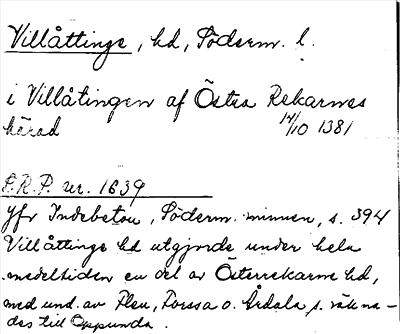 Villåttinge, hd, Söderm. l.
i Villåtingen af Östra Rekarnes
härad 14/10 1381
P.R.P. nr. 1639
Jfr Indebetou, Söderm. minnen, s. 394
Villåttinge hd utgjorde under hela
medeltiden en del av Österrekarne hd,
med und. av Flen, Forssa o. Årdala s. räkna-
des till Oppunda.